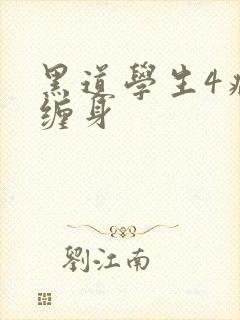 黑道學生4
缠身
劉江南